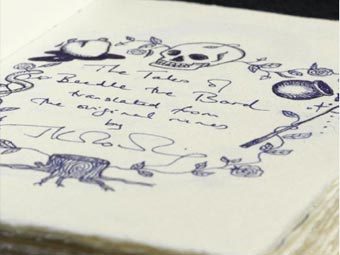 The Tales of
Beedle the Bard
translated from
the original runes
by